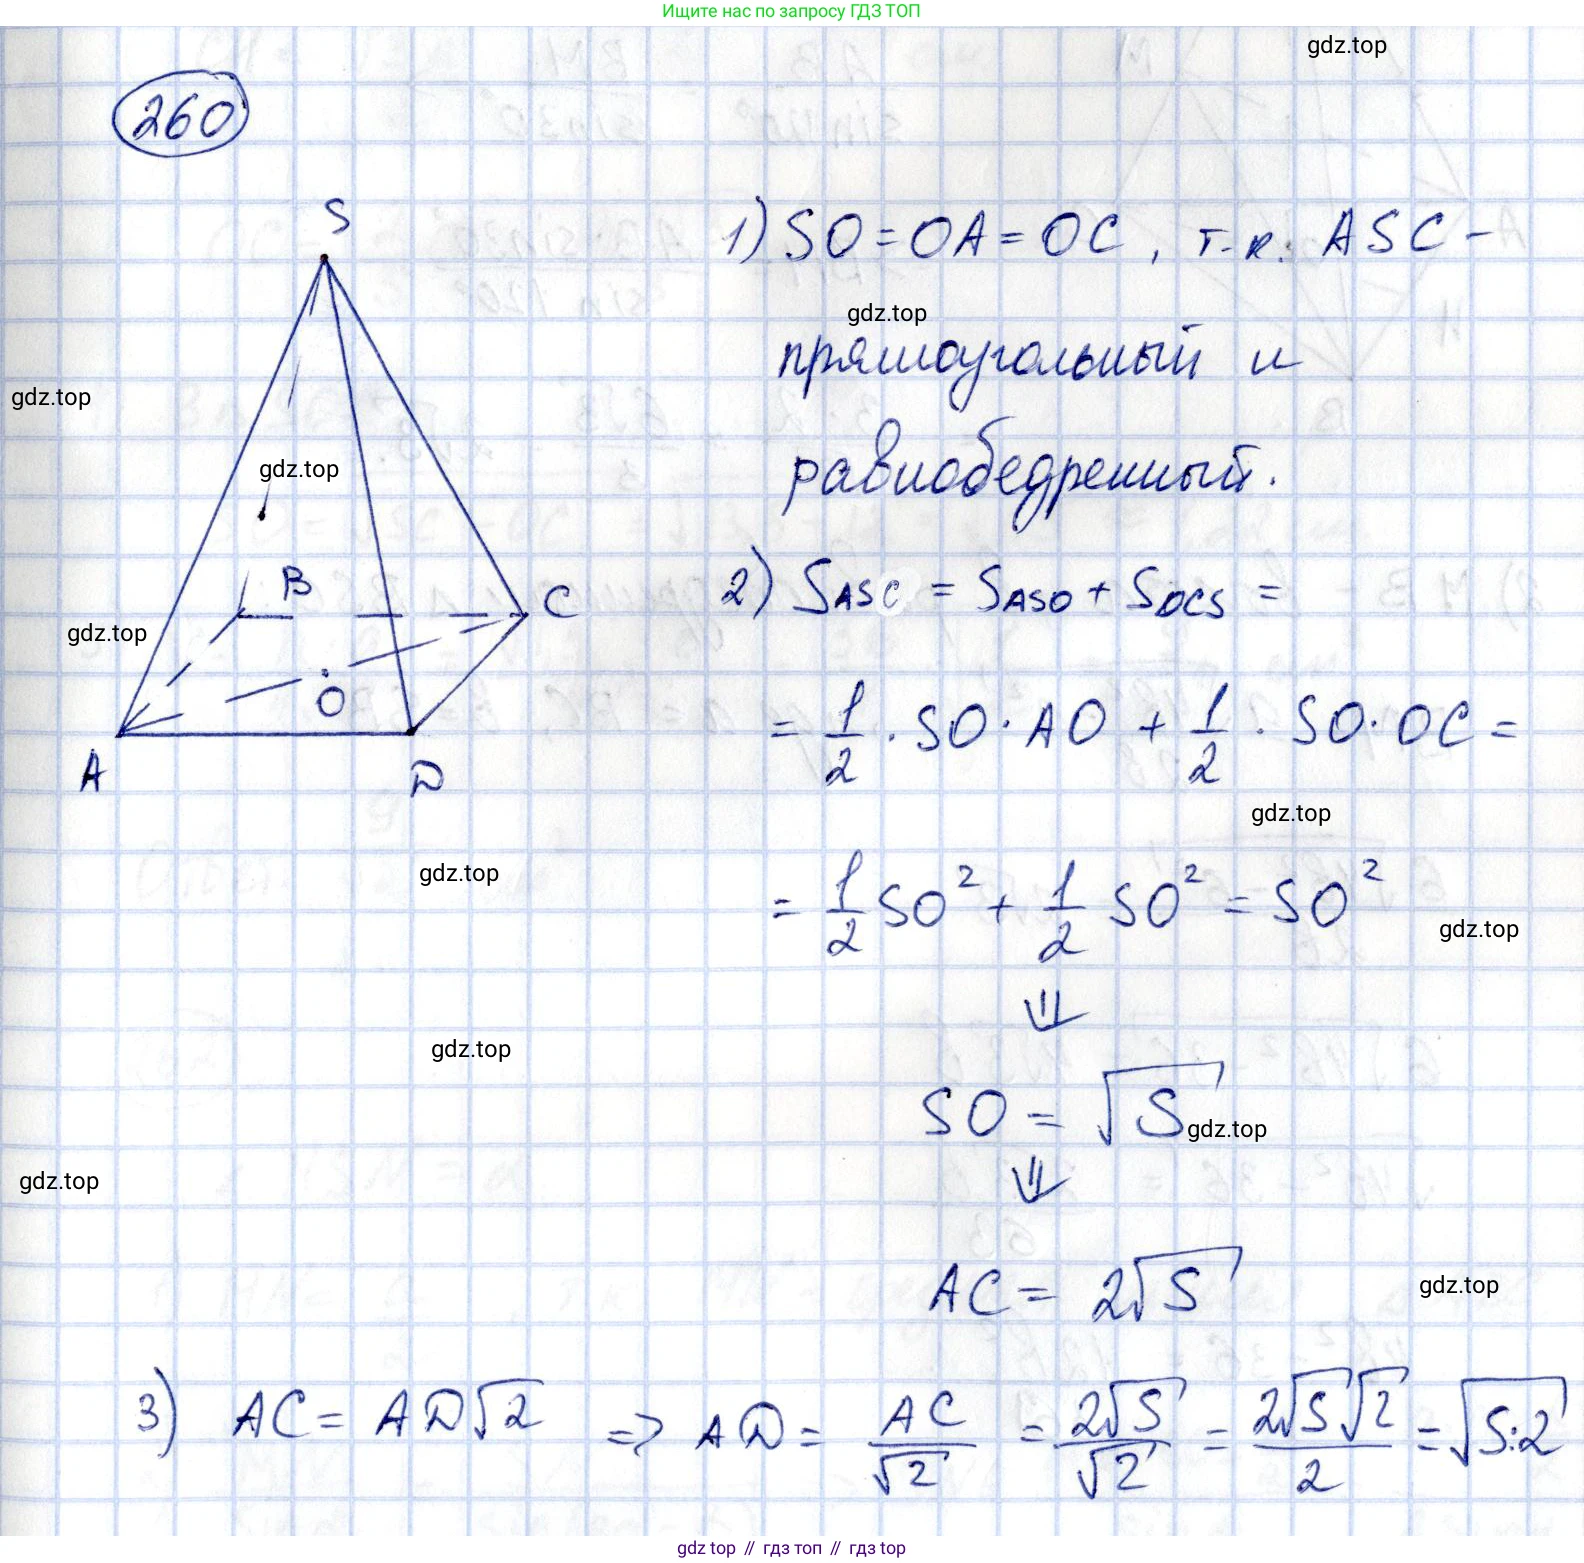 Ищите нас по запросу ГДЗ ТОП
gdz.top
260
S
1) SO = OA = OC, т.к. ASC -
gdz.top
прямоугольный и
gdz.top
равнобедренный.
gdz.top
B
C
2) SASC = SASO + SOCS =
gdz.top
O
= 1/2 · SO · AO + 1/2 · SO · OC =
A
D
gdz.top
gdz.top
= 1/2 SO² + 1/2 SO² = SO²
gdz.top
⇓
gdz.top
SO = √S
gdz.top
⇓
gdz.top
AC = 2√S
gdz.top
3) AC = AD√2 => AD = AC/√2 = 2√S/√2 = 2√S√2/2 = √S·2
gdz.top // гдз топ // gdz.top